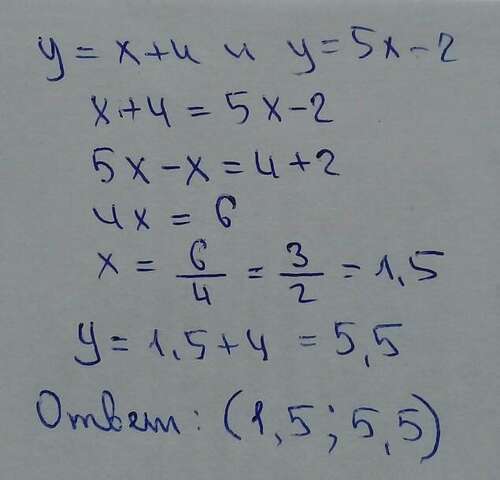 y = x+4 и y = 5x-2
x+4 = 5x-2
5x-x = 4+2
4x = 6
x = 6/4 = 3/2 = 1,5
y = 1,5+4 = 5,5
Ответ: (1,5; 5,5)